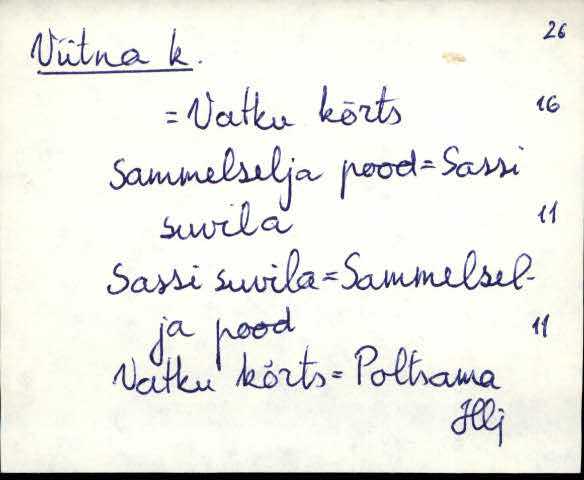 26
Viitna k.
= Vatku kõrts 16
Sammelselja pood = Sassi
suvila 11
Sassi suvila = Sammelsel-
ja pood 11
Vatku kõrts = Poltsama
Hlj